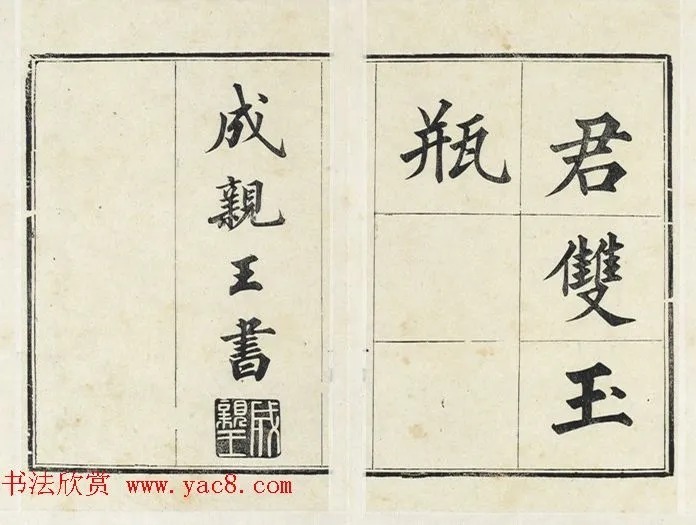 君雙玉
瓶
成親王書
成親王
书法欣赏 www.yac8.com